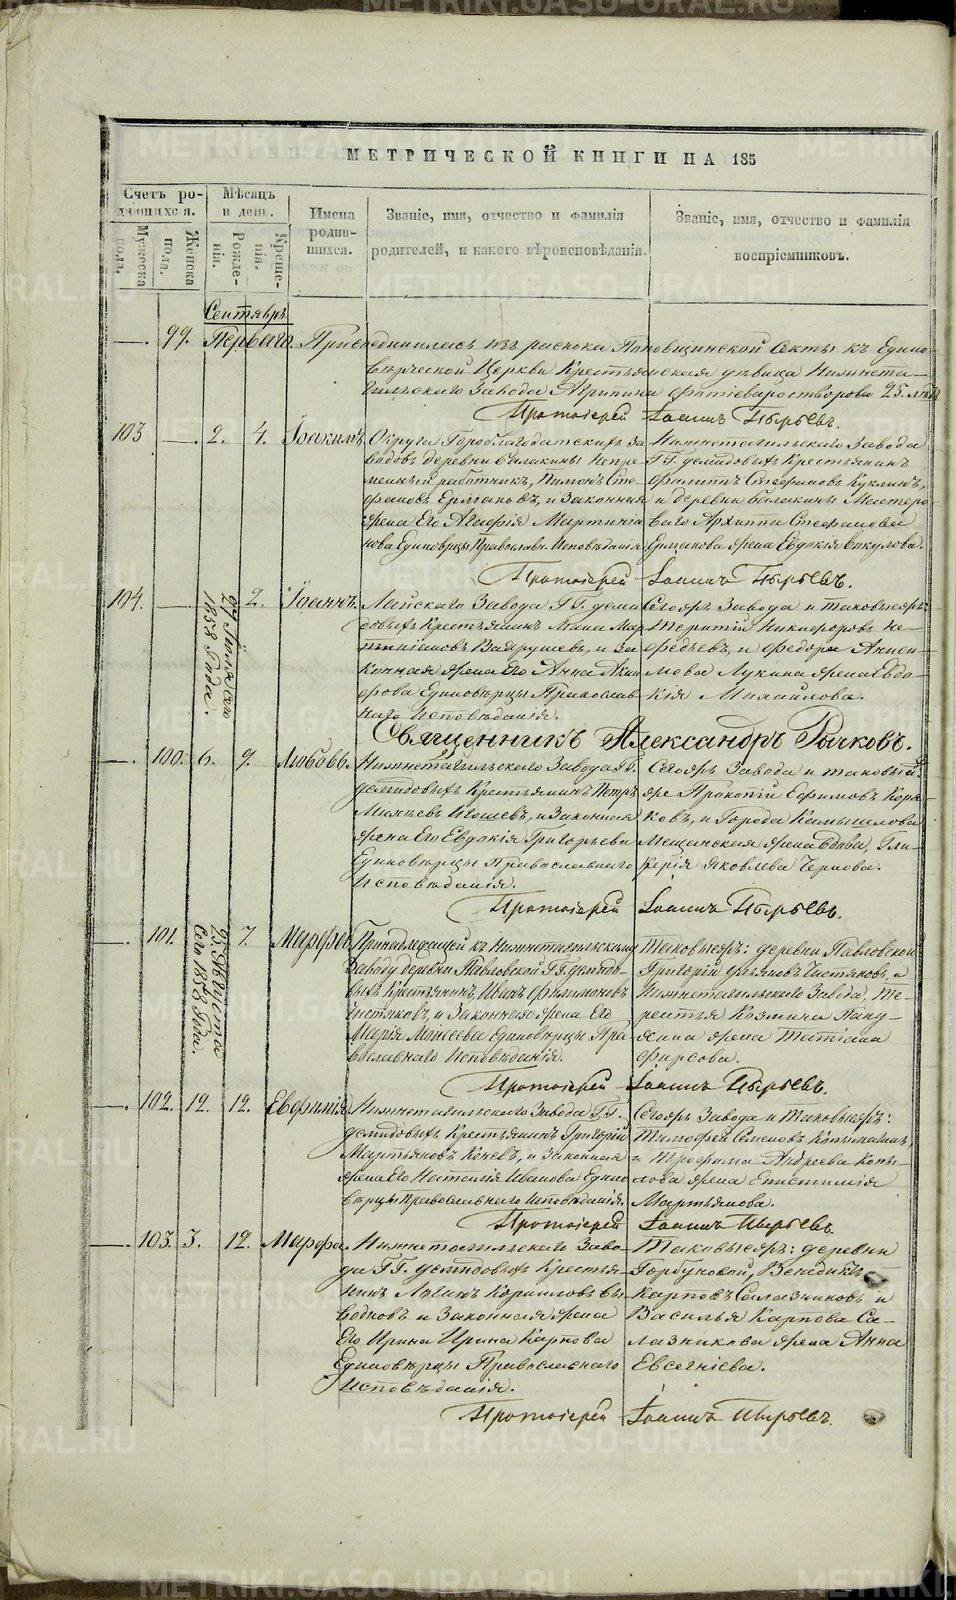 МЕТРИЧЕСКОЙ КНИГИ НА 185
Счетъ ро-
дившихся.
Мужеска пола.
Женска пола.
Мѣсяцъ
и день.
Рожде-
нія.
Креще-
нія.
Имена
родив-
шихся.
Званіе, имя, отчество и фамилія
родителей, и какого вѣроисповѣданія.
Званіе, имя, отчество и фамилія
воспріемниковъ.
Сентябрь
— 99. Перваго. Присоединилась изъ раскола Поповщинской секты къ Едино-
вѣрческой Церкви Крестьянская дѣвица Нижнета-
гильскаго Завода Агрипина 25. лѣтъ
Протоіерей Іоаннъ Пырьевъ.
103 — 2. 4. Іоакимъ
Округа Гороблагодатскихъ За-
водовъ деревни Балакины Непре-
менный работникъ, Пименъ Сте-
фановъ Ермаковъ, и Законная
жена Его Агафія Мартини-
нова Единовѣрцы Православн. Исповѣданія
Нижнетагильскаго Завода
ГГ. Демидовыхъ Крестьянинъ
Филиппъ Стефановъ Куклинъ,
и деревни Балакины Мастеро-
ваго Архиппа Стефанова
Ермакова жена Евдокія Викулова.
Протоіерей Іоаннъ Пырьевъ.
104. — 29 Іюля сего 1858 Года. 2. Іоаннъ.
Лайскаго Завода ГГ. Деми-
довыхъ Крестьянинъ Мар-
тиніановъ Вахрушевъ, и За-
конная жена Его Анна Аки-
фрова Единовѣрцы Православ-
наго Исповѣданія.
Сегожъ Завода и таковыежъ:
Терентій Никифоровъ Не-
федьевъ, и Федора Аниси-
мова Лукина жена Евдо-
кія Михайлова.
Священникъ Александръ Рычковъ.
— 100. 6. 9. Любовь.
Нижнетагильскаго Завода ГГ.
Демидовыхъ Крестьянинъ Петръ
Михѣевъ Игошевъ, и Законная
жена Его Евдокія Григорьева
Единовѣрцы Православнаго
Исповѣданія.
Сегожъ Завода и таковый
же Прокопій Ефимовъ Коро-
ковъ, и Города Камышлова
Мещанская жена Вдова, Гли-
керія Яковлева Чернова.
Протоіерей Іоаннъ Пырьевъ.
— 101. 25 Августа Сего 1858 Года. 7. Марфа
Принадлежащей къ Нижнетагильскому
Заводу деревни Павловской ГГ. Демидо-
выхъ Крестьянинъ, Иванъ Филимоновъ
Чистяковъ, и Законная жена Его
Марія Моисеева Единовѣрцы Пра-
вославнаго Исповѣданія.
Таковыежъ: деревни Павловской
Григорій Чистяковъ, и
Нижнетагильскаго Завода, Те-
рентья Козмина
жена Татіана
Фирсова.
Протоіерей Іоаннъ Пырьевъ.
— 102. 12. 12. Евфимія
Нижнетагильскаго Завода ГГ.
Демидовыхъ Крестьянинъ Григорій
Мартьяновъ Коневъ, и Законная
жена Его Наталія Иванова Едино-
вѣрцы Православнаго Исповѣданія.
Сегожъ Завода и Таковыежъ:
Тимофей Семеновъ
и Трофима Андреева Копы-
лова жена Епистимія
Мартьянова.
Протоіерей Іоаннъ Пырьевъ.
— 103. 3. 12. Марфа.
Нижнетагильскаго Заво-
да ГГ. Демидовыхъ Крестья-
нинъ Логинъ Корниловъ Вы-
водновъ и Законная жена
Его Ирина Ирина Карпова
Единовѣрцы Православнаго
Исповѣданія.
Таковыежъ: деревни
Горбуновой, Венедиктъ
Карповъ Салазниковъ и
Василья Карпова Са-
лазникова жена Анна
Евсегніева.
Протоіерей Іоаннъ Пырьевъ.
METRIKI.GASO-URAL.RU